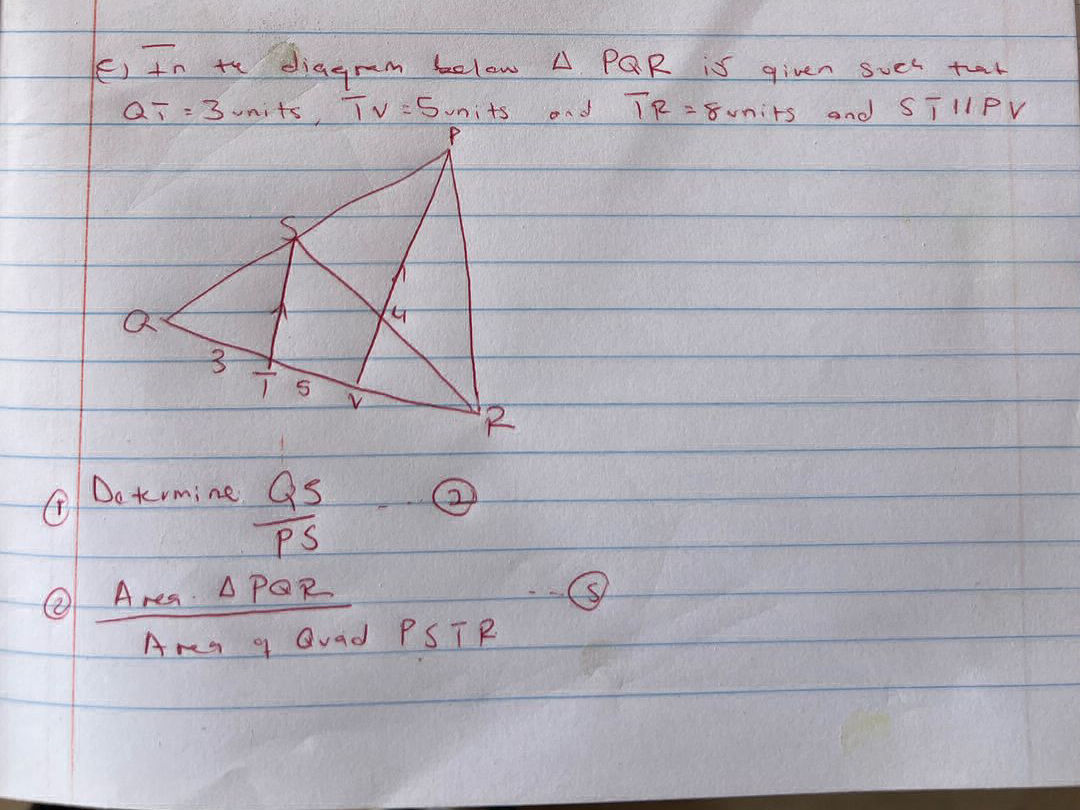 E) In the diagram below Δ PQR is given such that
QT = 3 units, TV = 5 units and TR = 8 units and ST // PV
P
S
Q
4
3
T
5
V
R
① Determine QS/PS -- ②
② Area. Δ PQR -- ⑤
Area of Quad PSTR